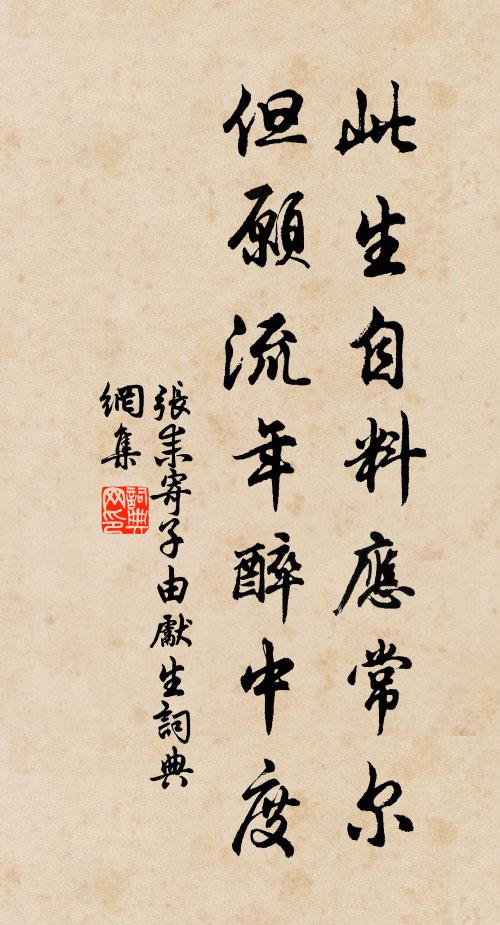 此生自料應常尔
但願流年醉中度
張耒寄子由獻生詞典
網集
詞典
网印